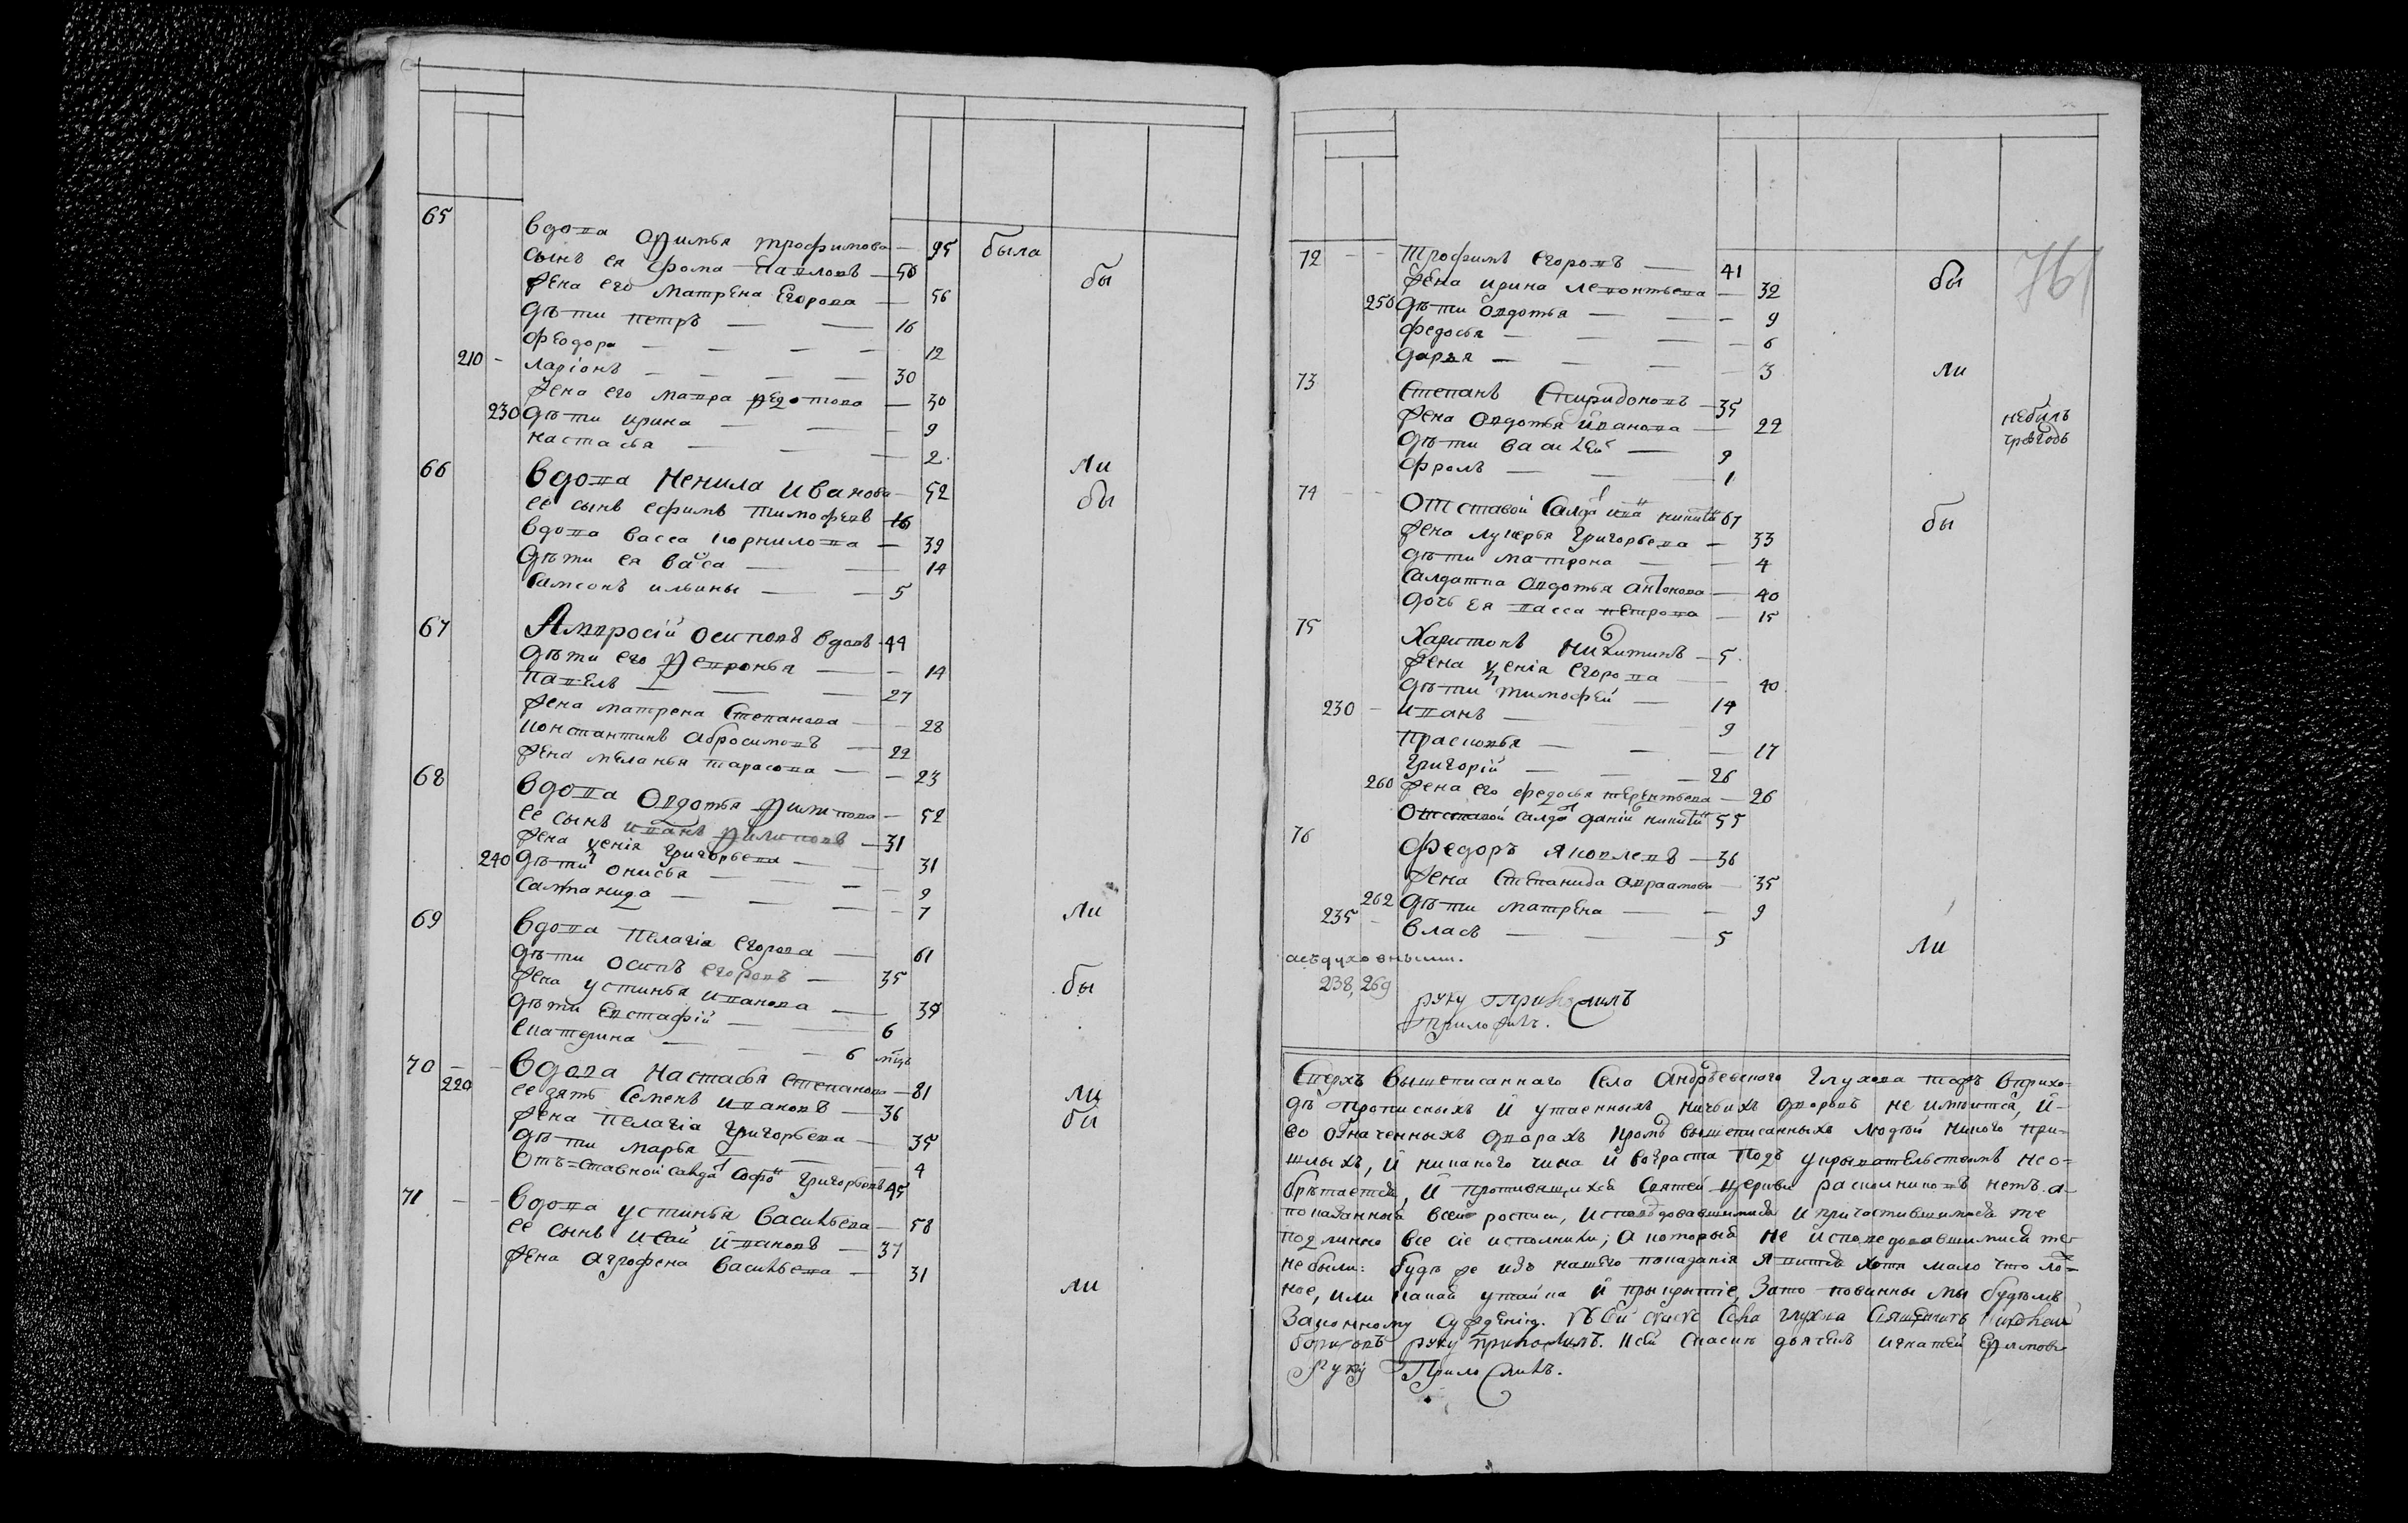 65
вдова Офимья трофимова — 95 была
сынъ ея фома Павловъ — 50 бы
жена его матрена Егорова — 56
дѣти петръ — — 16
феодора — — — — 12
210 - ларіонъ — — — — 30
жена его мавра федотова — 30
230 дѣти ирина — — — 9
настасья — — — 2
66 вдова Ненила Иванова — 52 ли
ее сынъ ефимъ тимофеевъ 16 бы
вдова васса корнилова — 39
дѣти ея васа — — 14
Самсонъ ильины — — 5
67 Амвросій осиповъ вдовъ 44
дѣти его февронья — — 14
павелъ — — — 27
жена матрена Степанова — — 28
константинъ абросимовъ — 22
жена меланья тарасова — — 23
68 вдова Овдотья филипова — 52
ее сынъ иванъ филиповъ — 31
жена ѯенія григорьева — — 31
240 дѣти онисья — — — — 9
саломанида — — — — 7
69 вдова пелагіа егорова — 61 ли
дѣти осипъ егоровъ — 35
жена устинья иванова — 34 бы
дѣти Евстафій — — 6
Екатерина — — — 6 мцъ
70 — — вдова настасья степанова — 81
220 ее зять Семенъ ивановъ — 36 ли
жена пелагіа григорьева — 35 бы
дѣти марья — — — 4
Отъ=ставной салда софо григорьевъ 45
71 — — вдова устинья васильева — 58
ее сынъ исай ивановъ — 37
жена агрофена васильева — 31
ли
761
72 — — трофимъ егоровъ — 41 бы
жена ирина леонтьева — 32
250 дѣти овдотья — — — 9
федосья — — — — 6
дарья — — — — 3
ли
73 Степанъ Спиридоновъ — 35 небылъ
жена Овдотья иванова — 22
дѣти василей — 9
фролъ — — — 1
74 — — Отставой Салда ива никити 67 бы
жена лукерья григорьева — 33
дѣти матрона — — 4
Салдатка авдотья антонова — 40
дочь ея васса петрова — 15
75 Харитонъ никитинъ — 5
жена ѯенія егорова — — 40
дѣти тимофей — 14
230 — иванъ — — 9
прасковья — — — 17
григорій — — — 26
260 жена его федосья терентьева — 26
Отставой салда даній никити 55
76 федоръ яковлевъ — 36
жена степанида авраамова — 35
262 дѣти матрена — — 9
235 — власъ — — — 5
ли
асъдуховными.
238, 269
руку приложилъ
приложилъ.
Сверхъ вышеписаннаго села андрѣевского глухова тожъ вприхо-
дѣ прописныхъ и утаенныхъ ничьихъ дворовъ не имѣится, и-
во означенныхъ дворахъ кромѣ вышеписанныхъ людей никого при-
шлыхъ, и никакого чина и возраста подъ укрывательствомъ не о=
брѣтается, и противящихся святей церкви расколниковъ нетъ. а-
показанныя всей росписи, исповѣдовавшимися и причастившимися те
подлинно все сіе исполнили; а которыя не исповедовавшимися те-
небыли: будѣ же изъ нашего показанія явитца хотя мало что ло=
ное, или какая утайка и прикрытіе, зато повинны мы будѣмъ
законному сужденію. Къ сей скаске села глухова священикъ
борисовъ руку приложилъ. Ксей скаски дьячекъ игнатей ефимовъ
Руку Приложилъ.